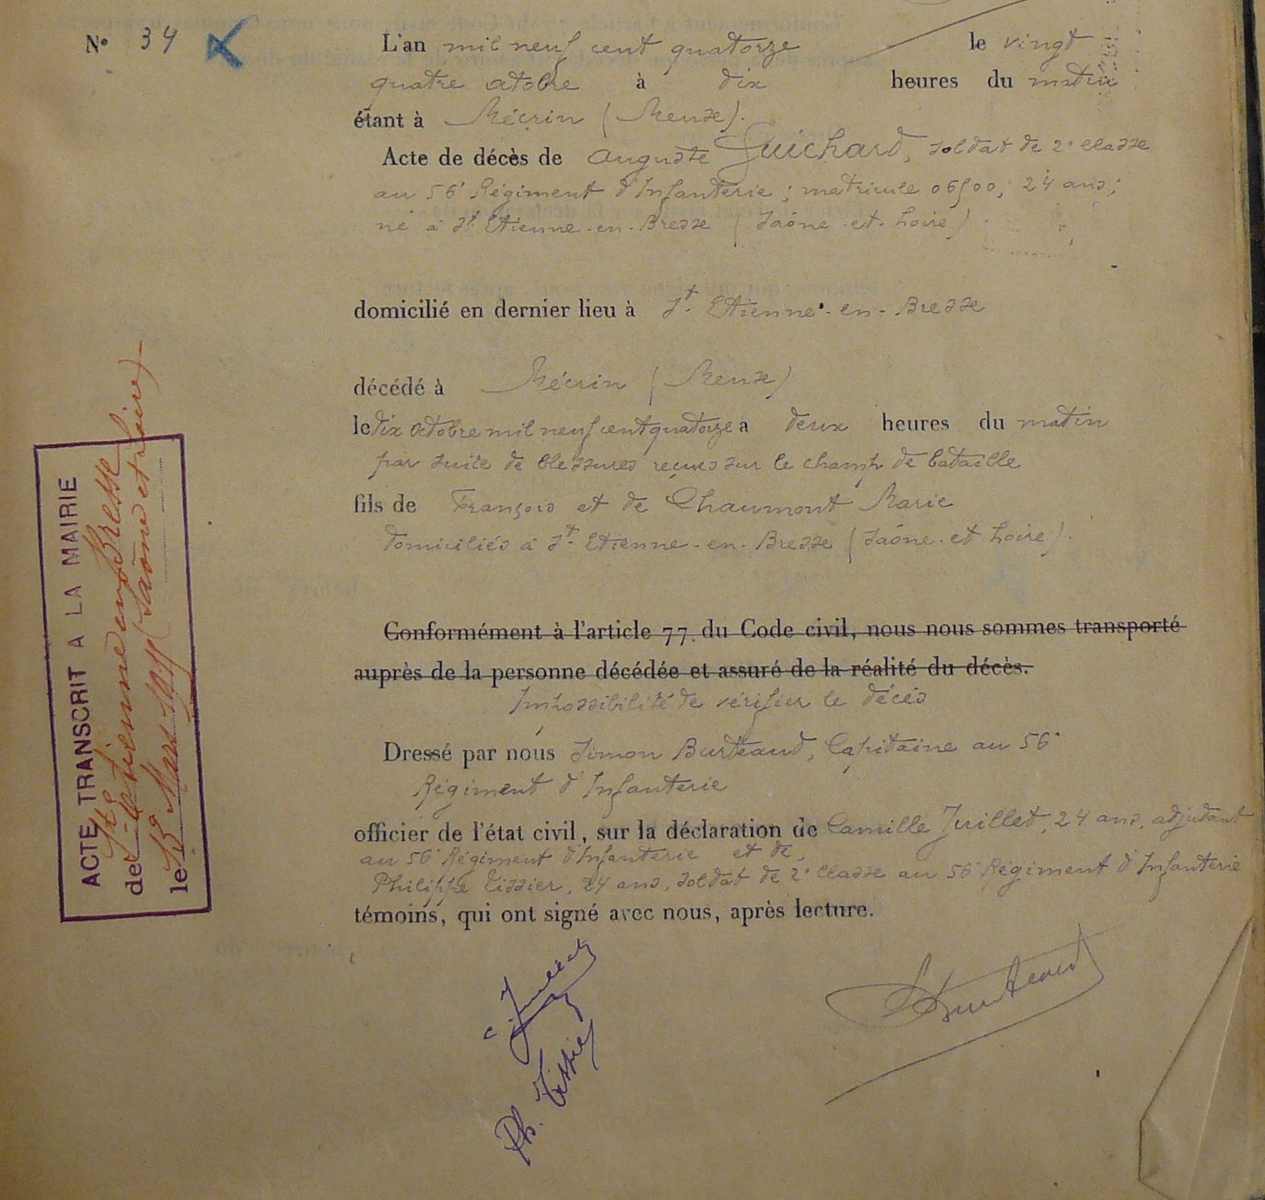 N° 34
L'an mil neuf cent quatorze le vingt
quatre octobre à dix heures du matin
étant à Mécrin (Meuse).
Acte de décès de Auguste Guichard, soldat de 2e classe
au 56e Régiment d'Infanterie ; matricule 06500, 24 ans ;
né à St Etienne-en-Bresse (Saône-et-Loire).
domicilié en dernier lieu à St Etienne-en-Bresse
décédé à Mécrin (Meuse)
le dix octobre mil neuf cent quatorze a deux heures du matin
par suite de blessures reçues sur le champ de bataille
fils de François et de Chaumont Marie
domiciliés à St Etienne-en-Bresse (Saône-et-Loire).
Conformément à l'article 77 du Code civil, nous nous sommes transporté
auprès de la personne décédée et assuré de la réalité du décès.
Impossibilité de vérifier le décès
Dressé par nous Simon Burteaud, Capitaine au 56e
Régiment d'Infanterie
officier de l'état civil, sur la déclaration de Camille Juillet, 24 ans, adjudant
au 56e Régiment d'Infanterie et de
Philippe Tissier, 24 ans, soldat de 2e classe au 56e Régiment d'Infanterie
témoins, qui ont signé avec nous, après lecture.
C. Juillet
Ph. Tissier
S Burteaud
ACTE TRANSCRIT A LA MAIRIE
de St Etienne en Bresse
(Saône et Loire)
le 13 Mars 1915